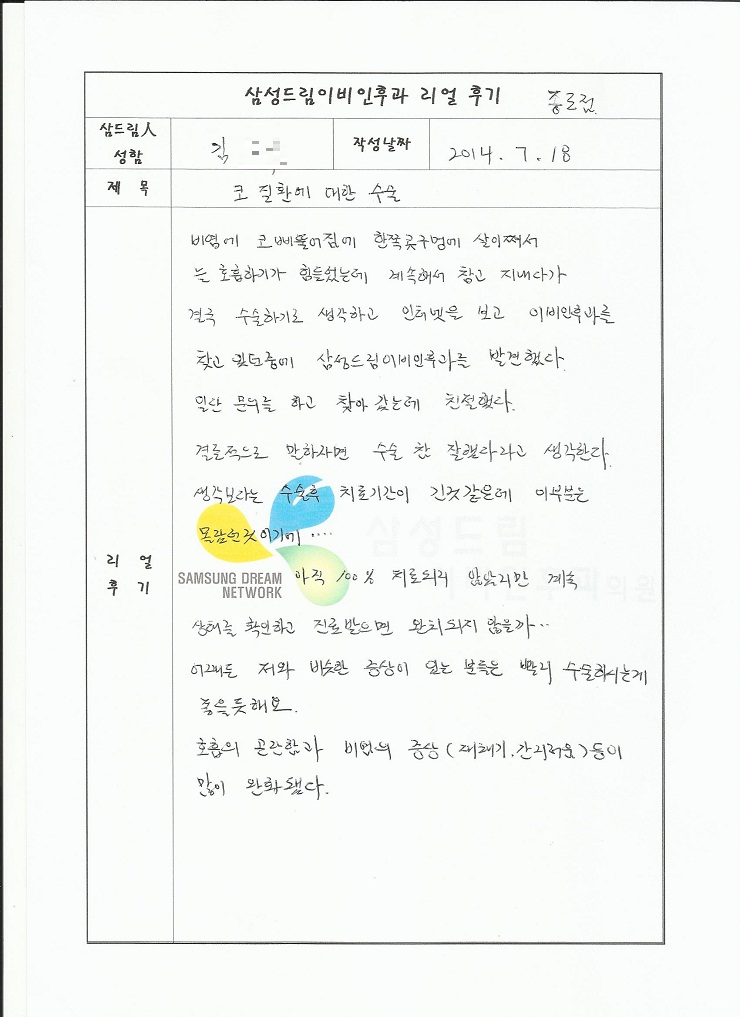 삼성드림이비인후과 리얼 후기 종로점
삼드림人
성함
김
작성날짜
2014. 7. 18
제 목
코 질환에 대한 수술
비염에 코삐뚤어짐에 한쪽콧구멍에 살이쪄서
는 호흡하기가 힘들었는데 계속해서 참고 지내다가
결국 수술하기로 생각하고 인터넷을 보고 이비인후과를
찾고 있던중에 삼성드림이비인후과를 발견했다.
일단 문의를 하고 찾아 갔는데 친절했다.
결론적으로 말하자면 수술 참 잘했다라고 생각한다.
생각보다는 수술후 치료기간이 긴것같은데 이부분은
몰랐던것이기에 ....
리 얼
후 기
SAMSUNG DREAM
NETWORK
삼성드림
이비인후과의원
아직 100% 치료되진 않았지만 계속
상태를 확인하고 진료받으면 완치되지 않을까..
어쨌든 저와 비슷한 증상이 있는 분들은 빨리 수술하시는게
좋을듯해요.
호흡의 곤란함과 비염의 증상(재채기.간지러움)등이
많이 완화됐다.